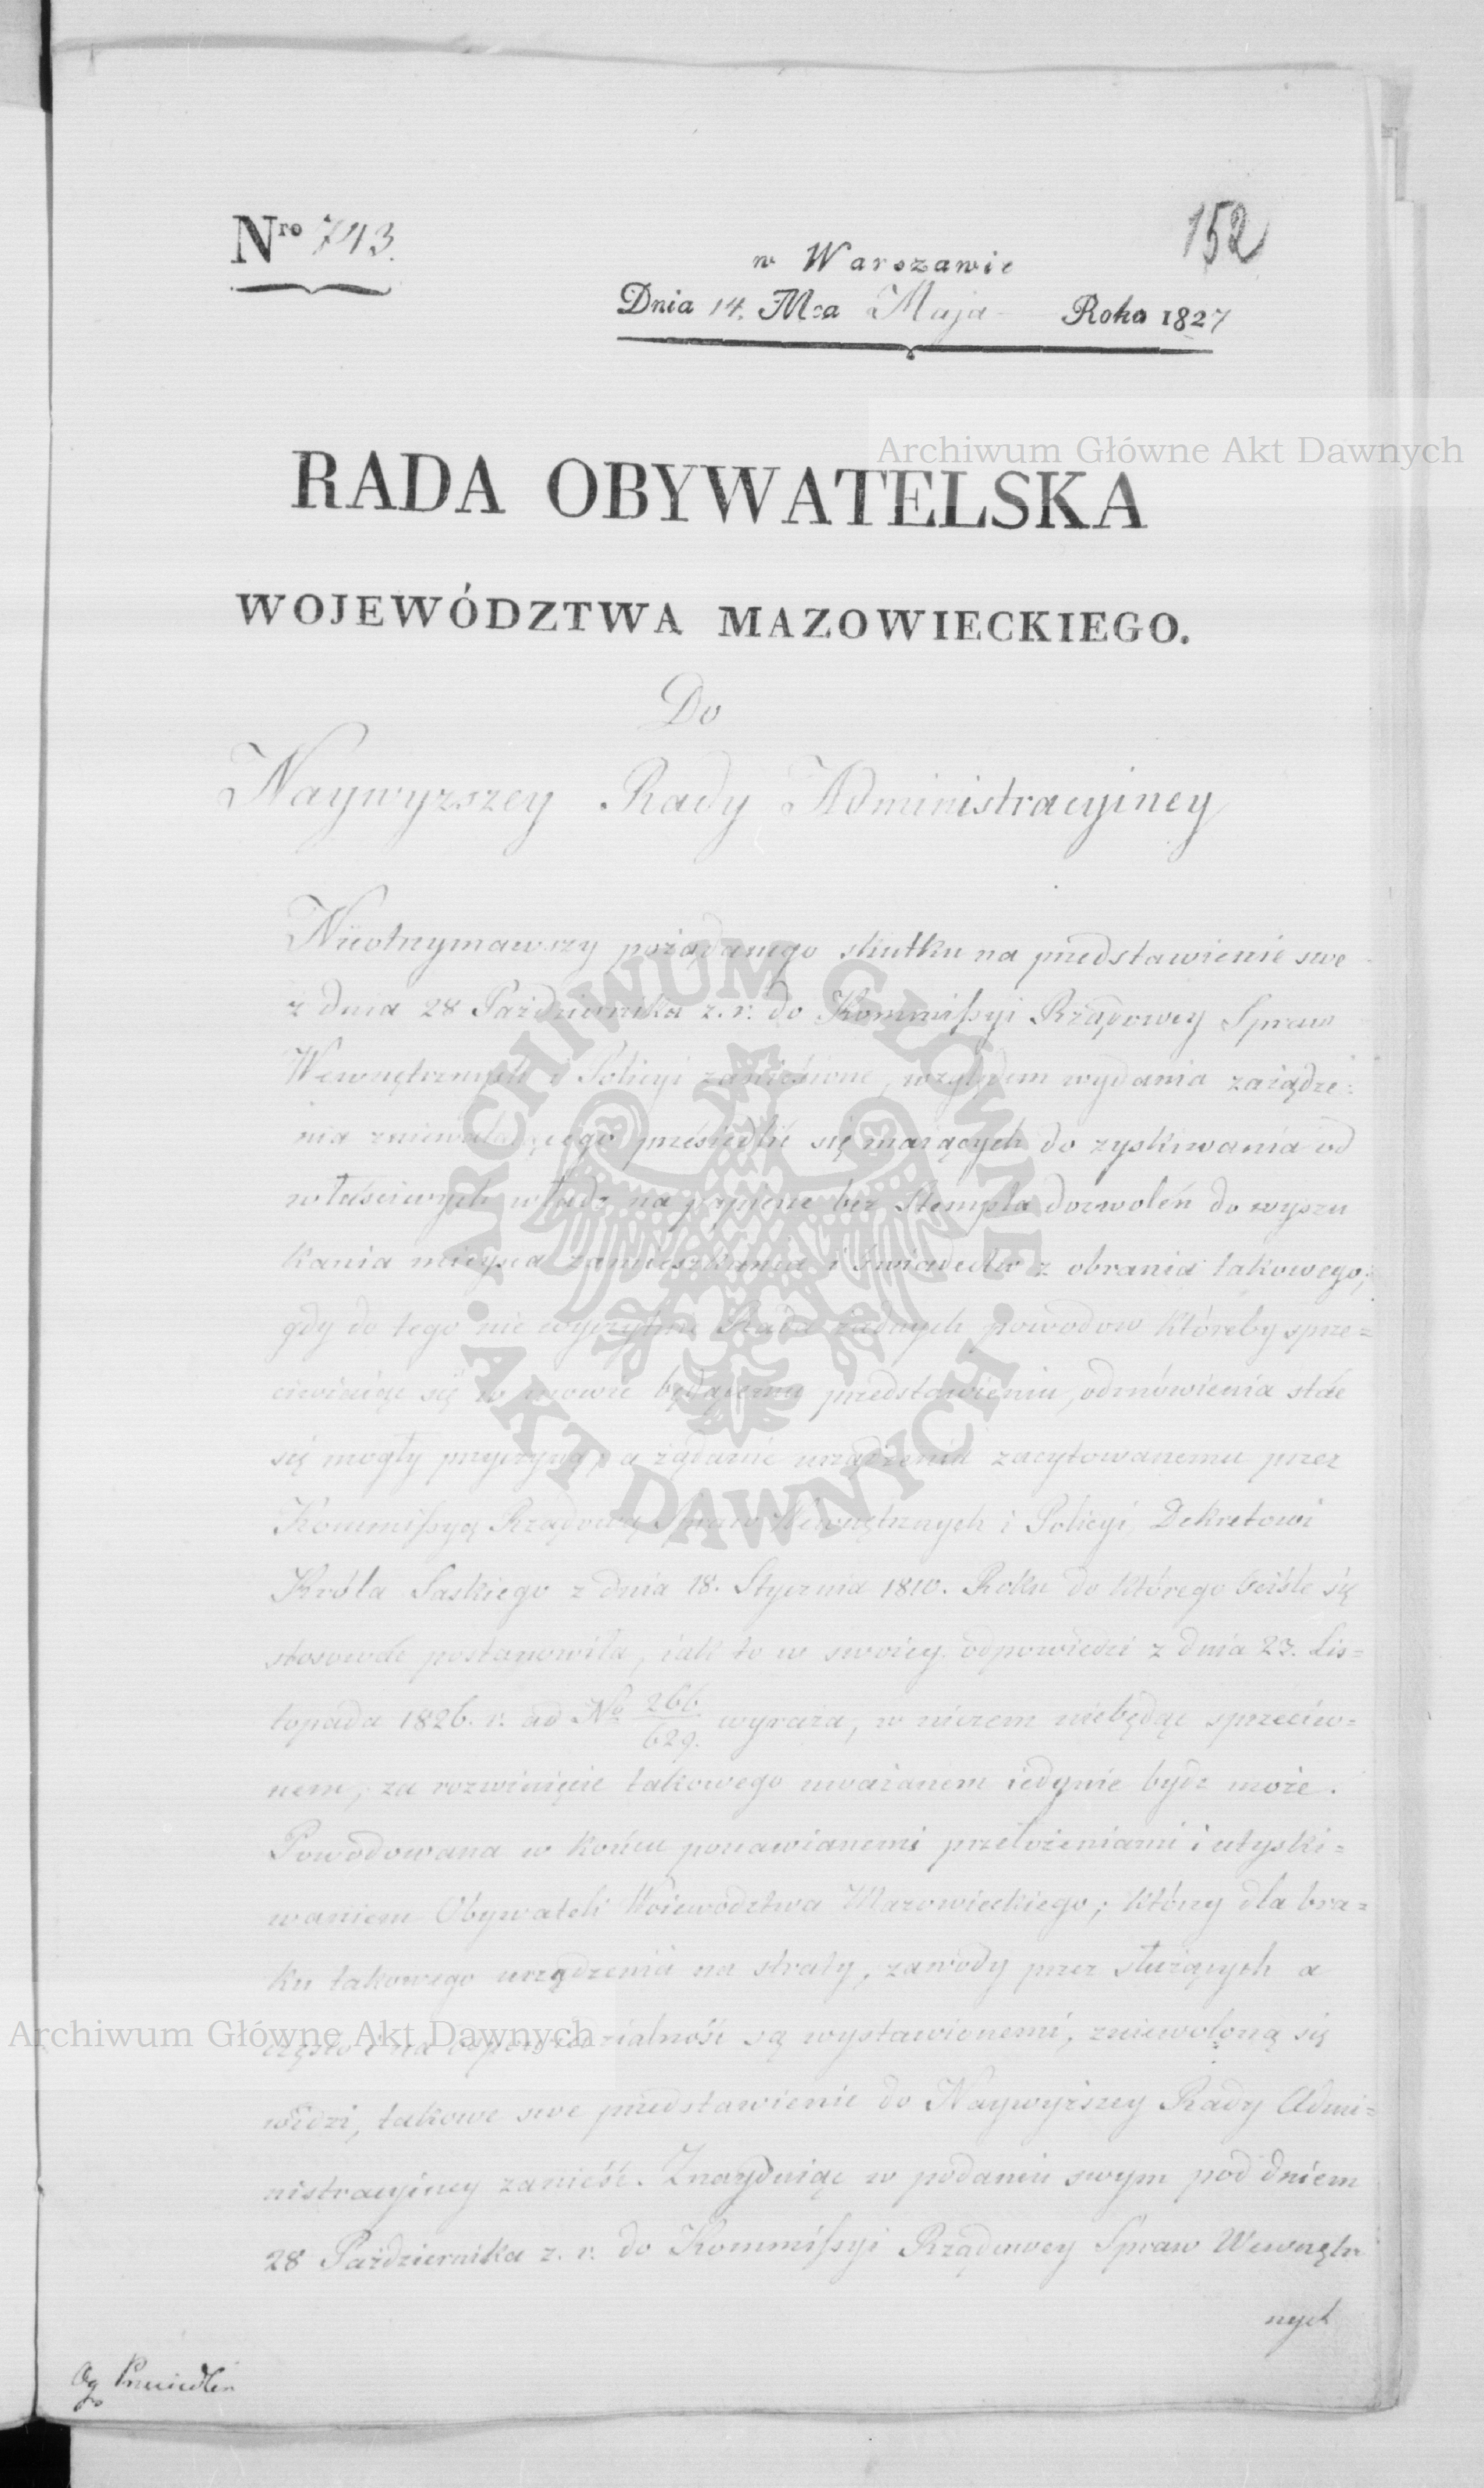 Nro 743.
152
w Warszawie
Dnia 14. M:ca Maja Roku 1827
RADA OBYWATELSKA
WOJEWÓDZTWA MAZOWIECKIEGO.
Do
Naywyzszey Rady Administracyiney
Nieotrzymawszy pożądanego skutku na przedstawienie swe
z dnia 28 Października z. r. do Kommissyi Rządowey Spraw
Wewnętrznych i Policyi zaniesione, względem wydania zarządze=
nia zniewalaiącego przesiedlić się maiących do zyskiwania od
właściwych władz na papierze bez Stempla dozwoleń do wyszu
kania mieysca zamieszkania i świadectw z obrania takowego;
gdy do tego nie wyczytuie Rada żadnych powodow któreby sprze=
ciwiaiąc się w mowie będącemu przedstawieniu, odmówienia stać
się mogły przyczyną, a żądanie urządzenia zacytowanemu przez
Kommissyą Rządową Spraw Wewnętrznych i Policyi Dekretowi
Króla Saskiego z dnia 18. Stycznia 1810. Roku do którego ściśle się
stosować postanowiła, iak to w swoiey odpowiedzi z dnia 23. Lis=
topada 1826. r. ad No 266/629. wyraża, w niczem niebędąc sprzeciw=
nem, za rozwinięcie takowego uważanem iedynie bydz może.
Powodowana w końcu ponawianemi przełożeniami i utyski=
waniem Obywateli Woiewodztwa Mazowieckiego; którzy dla bra=
ku takowego urządzenia na straty, zawody przez służących a
często i na odpowiedzialność są wystawionemi, zniewoloną się
widzi, takowe swe przedstawienie do Naywyższey Rady Admi=
nistracyiney zanieść. Znayduiąc w podaniu swym pod dniem
28 Października z. r. do Kommissyi Rządowey Spraw Wewnętrz
nych
Archiwum Główne Akt Dawnych
ARCHIWUM GŁÓWNE AKT DAWNYCH
Archiwum Główne Akt Dawnych